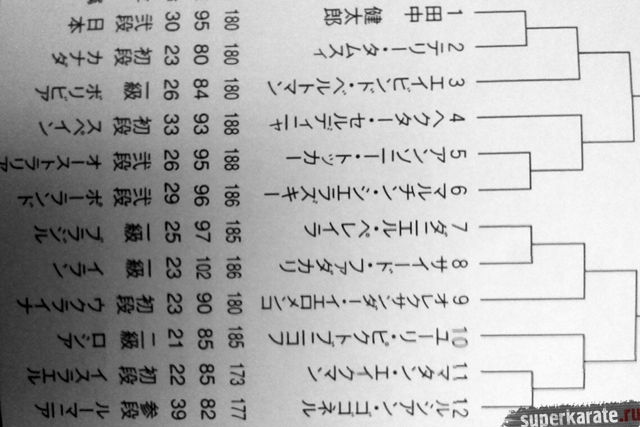 1 田中健太郎 180 95 30 弐段 日本
2 テリー・タムスィ 180 80 23 初段 カナダ
3 エイビンド・ベルトマン 180 84 26 一級 ボリビア
4 ヘクター・セルディニャ 188 93 33 初段 スペイン
5 アンソニー・トッカー 188 95 26 弐段 オーストラリア
6 マルチン・シエラズスキー 186 96 29 弐段 ポーランド
7 ダニエル・ペレイラ 185 97 25 一級 ブラジル
8 サイード・ファダカリ 186 102 23 一級 イラン
9 オレクサンダー・イエロメンコ 180 90 23 初段 ウクライナ
10 ユーリ・ビクトブニコフ 185 85 21 二級 ロシア
11 マタン・エイクマン 173 85 22 初段 イスラエル
12 ルシアン・ゴゴネル 177 82 39 参段 ルーマニア
superkarate.ru